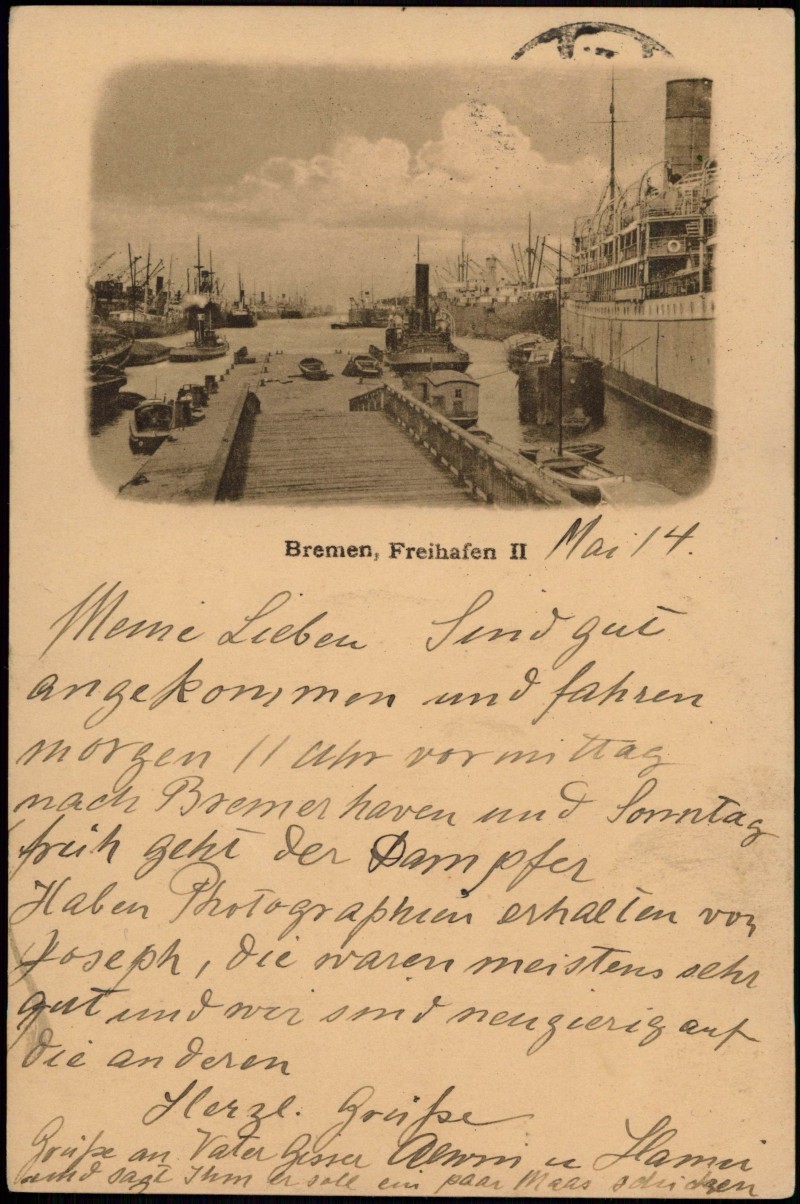 Bremen, Freihafen II Mai 14.
Meine Lieben Sind gut
angekommen und fahren
morgen 11 Uhr vormittag
nach Bremerhaven und Sonntag
früh geht der Dampfer
Haben Photographien erhalten von
Joseph, die waren meistens sehr
gut und wir sind neugierig auf
die anderen
Herzl. Grüße
Grüße an Vater u
und sagt Ihm er soll ein paar Maas